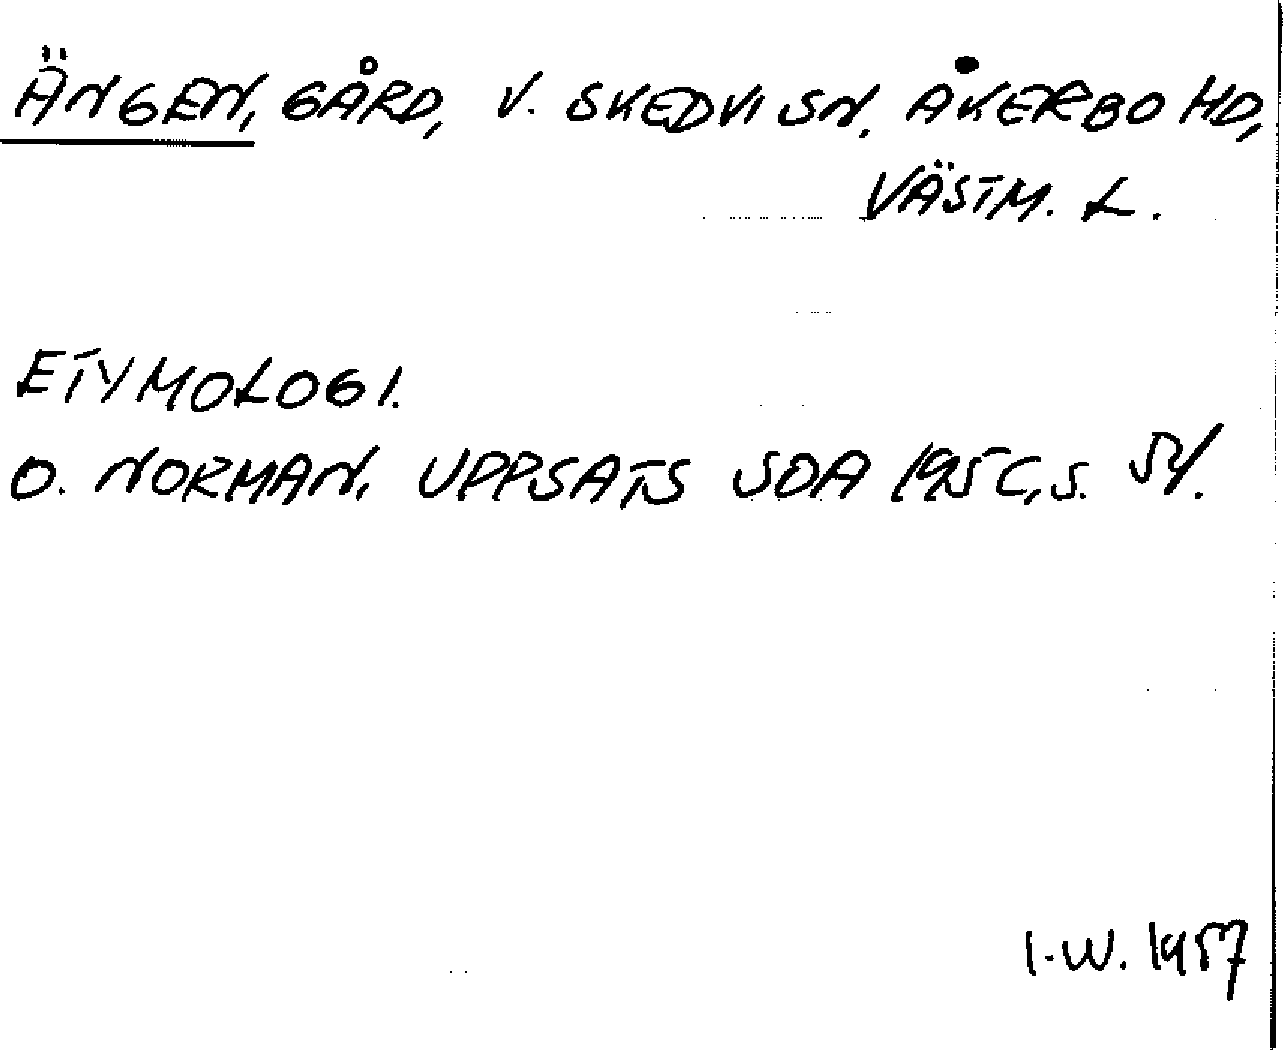 ÄNGEN, GÅRD, V. SKEDVI SN. ÅKERBO HD,
VÄSTM. L.
ETYMOLOGI.
O. NORMAN, UPPSATS SOA 195C, S. 54.
I-W. 1957